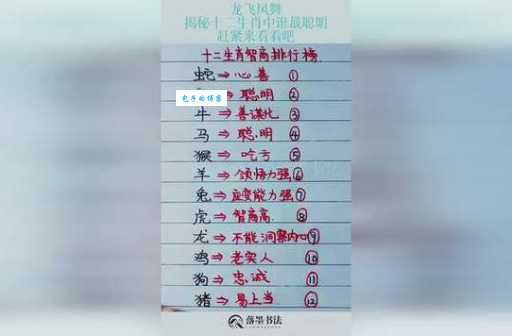 龙飞凤舞
揭秘十二生肖中谁最聪明
赶紧来看看吧
十二生肖智商排行榜
蛇⇒心善 ①
⇒聪明 ②
包子的博客
牛⇒善谋化 ③
马⇒聪明 ④
猴⇒吃亏 ⑤
羊⇒领悟力强⑥
兔⇒应变能力强⑦
虎⇒智商高. ⑧
龙⇒不能洞察内心⑨
鸡⇒老实人 ⑩
狗⇒忠诚 ⑪
猪⇒易上当 ⑫
落墨书法